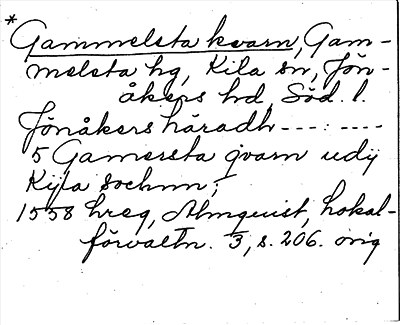 * Gammelsta kvarn, Gam-
melsta hg, Kila sn, Jön-
åkers hd, Söd. l.
Jönåkers häradh ---:----
5 Gamersta qvarn udij
Kijla sochnn;
1558 hreg, Almquist, Lokal-
förvaltn. 3, s. 206. orig